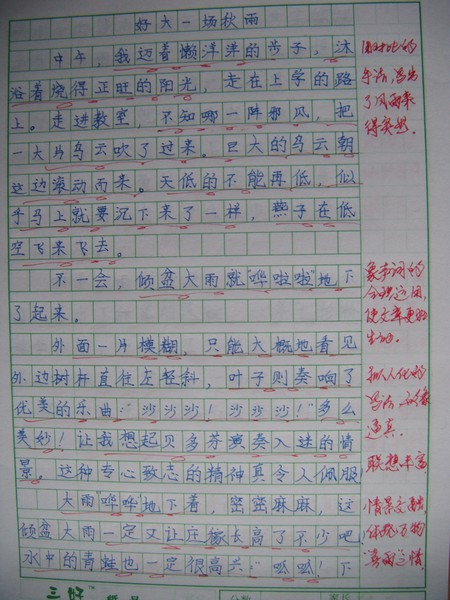 好大一场秋雨
中午，我迈着懒洋洋的步子，沐
浴着烧得正旺的阳光，走在上学的路
上。走进教室，不知哪一阵邪风，把
一大片乌云吹了过来。巨大的乌云朝
这边滚动而来。天低的不能再低，似
乎马上就要沉下来了一样，燕子在低
空飞来飞去。
不一会，倾盆大雨就“哗啦啦”地下
了起来。
外面一片模糊，只能大概地看见
外边树杆直往左轻斜，叶子则奏响了
优美的乐曲：“沙沙沙！沙沙沙！”多么
美妙！让我想起贝多芬演奏入迷的情
景。这种专心致志的精神真令人佩服
大雨哗哗地下着，密密麻麻，这
倾盆大雨一定又让庄稼长高了不少吧
水中的青蛙也一定很高兴：“呱呱！下
用对比的
写法，写出
了风雨来
得突然。
象声词的
合理运用，
使文章更加
生动。
拟人化的
写法，
逼真。
联想丰富
情景交融，
体现万物
“喜雨”之情
三好